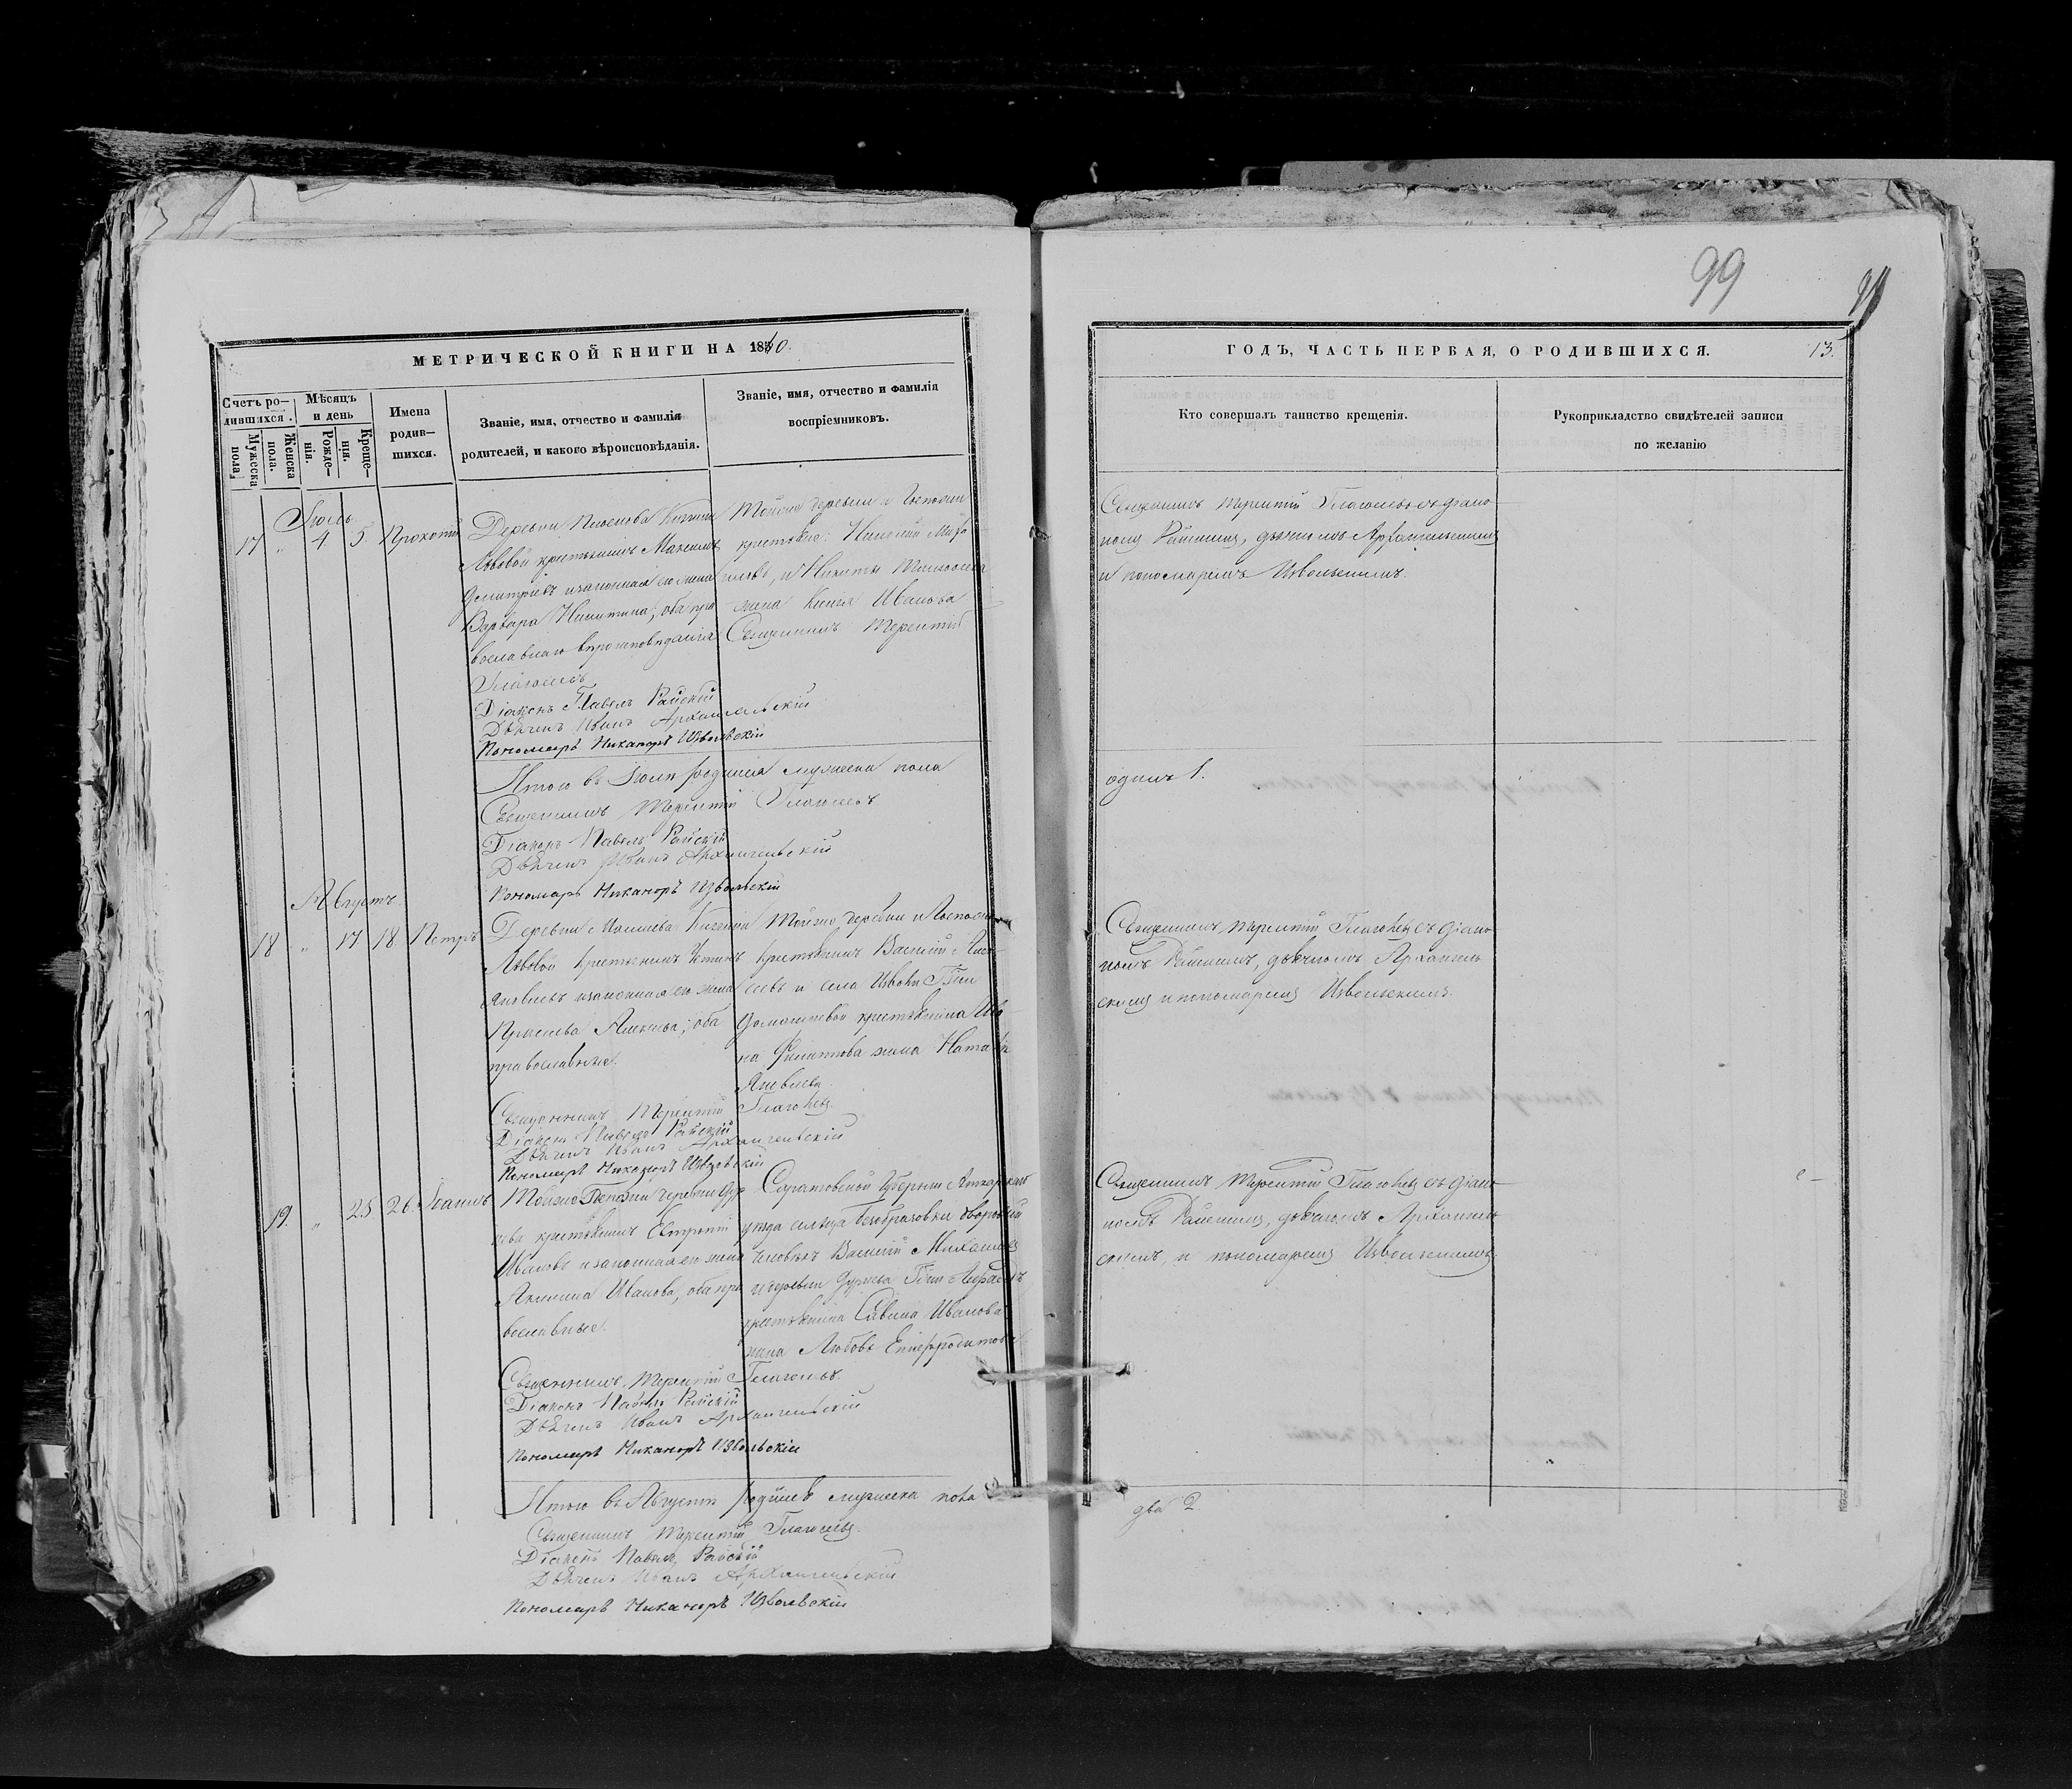 99
МЕТРИЧЕСКОЙ КНИГИ НА 1860.
Счетъ ро-
дившихся.
Мужеска
пола.
Женска
пола.
Мѣсяцъ
и день
Рожде-
нія.
Креще-
нія.
Имена
родив-
шихся.
Званіе, имя, отчество и фамилія
родителей, и какого вѣроисповѣданія.
Званіе, имя, отчество и фамилія
воспріемниковъ.
Іюль
17 " 4. 5. Прокопій
Деревни Княгини
Львовой крестьянинъ Максимъ
Димитріевъ и законная его жена
Варвара Никитина, оба пра
вославнаго вѣроисповѣданія
Тойже деревни и Госпожи
крестьяне:
и Никиты
жена Иванова
Священникъ Терентій
Глаголевъ
Діаконъ Павелъ Райскій
Дьячекъ Иванъ Архангельскій
Пономарь Никаноръ Извольскій
Итого въ Іюлѣ родился мужеска пола
Священникъ Терентій Глаголевъ
Діаконъ Павелъ Райскій
Дьячекъ Иванъ Архангельскій
Пономарь Никаноръ Извольскій
Августъ
18 " 17 18 Петръ
Деревни Княгини
Львовой крестьянинъ
Яковлевъ и законная его жена
Алексѣева; оба
православные.
Тойже деревни и Госпожи
крестьянинъ Василій Алек
сѣевъ и села Изволи Гжи
крестьянина Ива
на Филатова жена Наталья
Яковлева.
Священникъ Терентій Глаголевъ
Діаконъ Павелъ Райскій
Дьячекъ Иванъ Архангельскій
Пономарь Никаноръ Извольскій
19. " 25 26 Іоаннъ
Тойже Госпожи деревни Дур
нева крестьянинъ Евтропій
Ивановъ и законная его жена
Акилина Иванова, оба пра
вославные.
Саратовской Губерніи Аткарскаго
уѣзда сельца Безобразовки дворовый
человѣкъ Василій Михайловъ
и деревни Дурнева Гжи
крестьянина Саввина Иванова
жена Любовь Епафродитова
Священникъ Терентій Глаголевъ.
Діаконъ Павелъ Райскій
Дьячекъ Иванъ Архангельскій
Пономарь Никаноръ Извольскій
Итого въ Августѣ родилось мужеска пола
Священникъ Терентій Глаголевъ.
Діаконъ Павелъ Райскій
Дьячекъ Иванъ Архангельскій
Пономарь Никаноръ Извольскій
ГОДЪ, ЧАСТЬ ПЕРВАЯ, О РОДИВШИХСЯ.
13.
Кто совершалъ таинство крещенія.
Рукоприкладство свидѣтелей записи
по желанію
Священникъ Терентій Глаголевъ съ діако-
номъ Райскимъ, дьячкомъ Архангельскимъ
и пономаремъ Извольскимъ.
одинъ 1.
Священникъ Терентій Глаголевъ съ діако-
номъ Райскимъ, дьячкомъ Архангель
скимъ и пономаремъ Извольскимъ.
Священникъ Терентій Глаголевъ съ діако-
номъ Райскимъ, дьячкомъ Архангель
скимъ, и пономаремъ Извольскимъ
два 2.